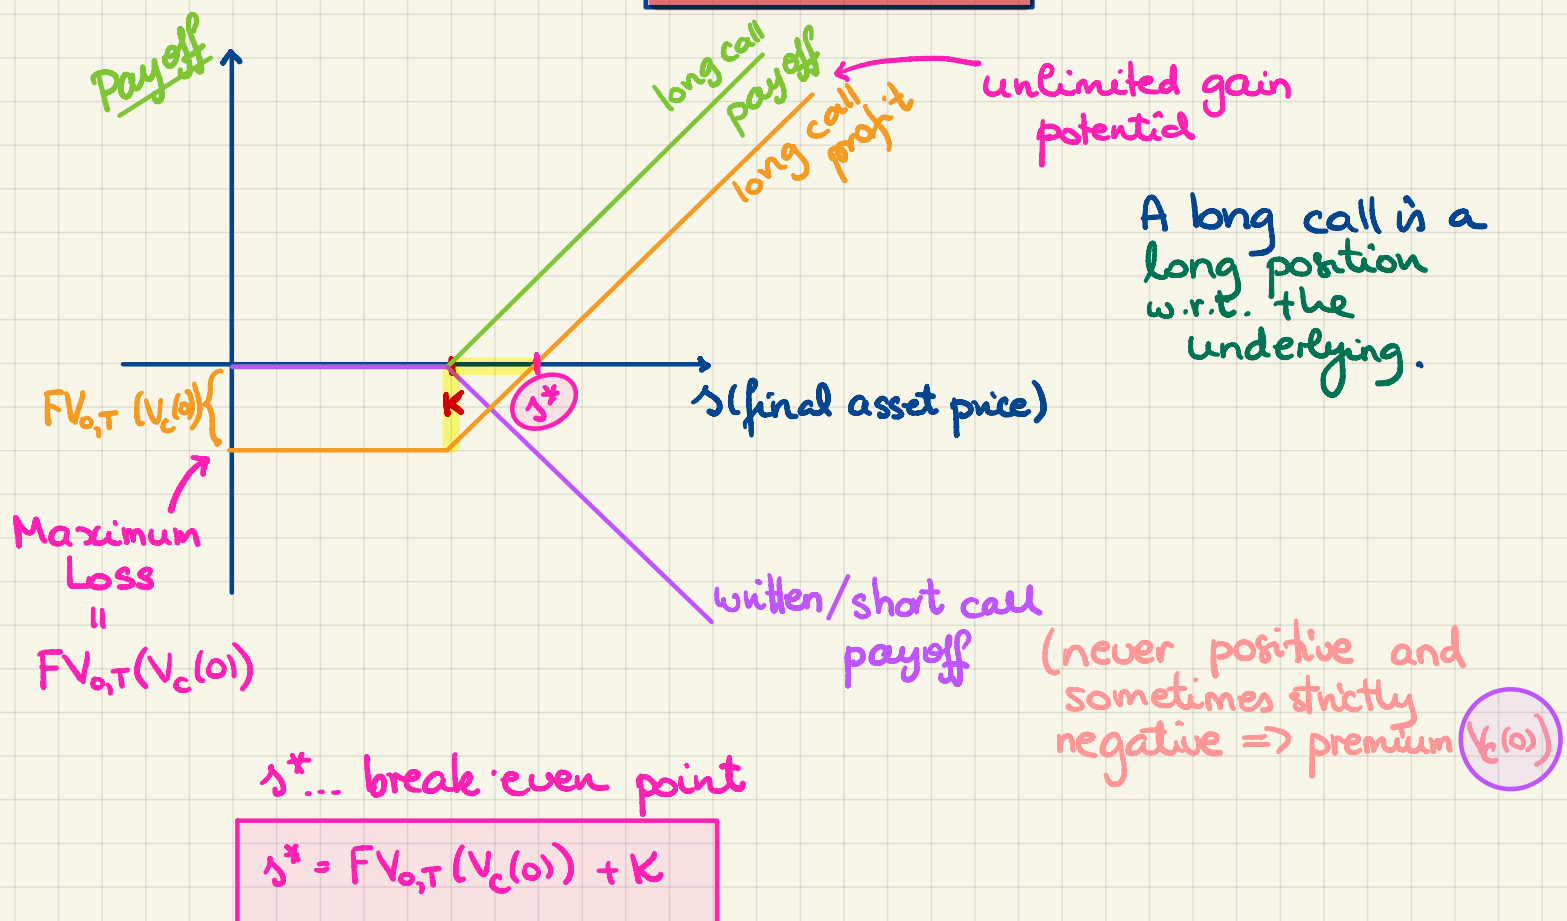 Payoff
long call
payoff
long call
profit
unlimited gain
potential
A long call is a
long position
w.r.t. the
underlying.
FV₀,T (V_C(0))
K
s*
s (final asset price)
Maximum
Loss
=
FV₀,T (V_C(0))
written/short call
payoff
(never positive and
sometimes strictly
negative => premium V_C(0))
s*... break-even point
s* = FV₀,T (V_C(0)) + K